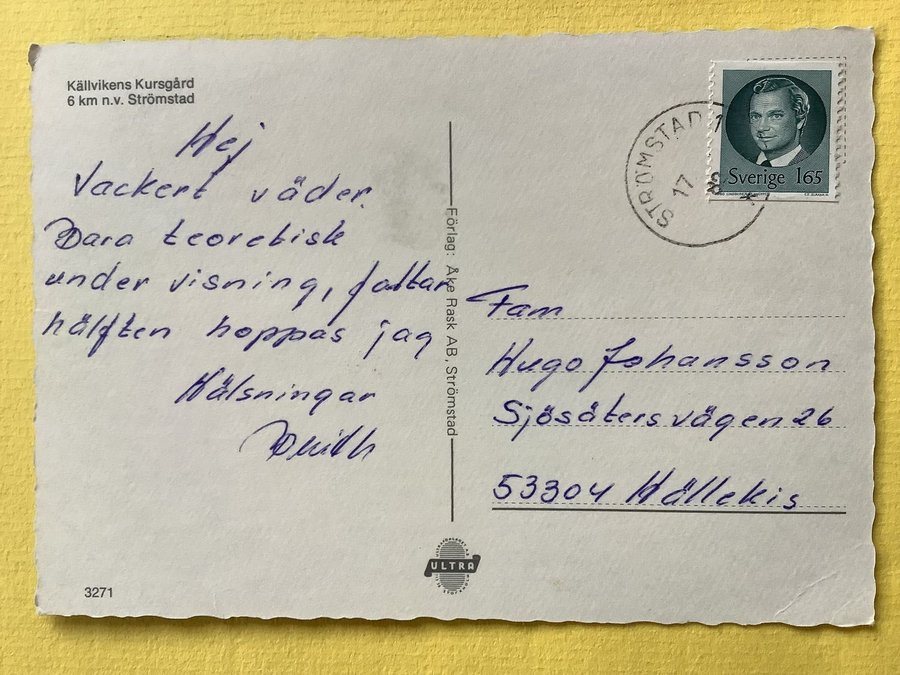 Källvikens Kursgård
6 km n.v. Strömstad
Hej
Vackert väder.
Bara teoretisk
under visning, fattar
hälften hoppas jag
Hälsningar
Förlag: Åke Rask AB, Strömstad
STRÖMSTAD 1
17
Sverige 165
Fam
Hugo Johansson
Sjösätersvägen 26
53304 Hällekis
ULTRA
3271